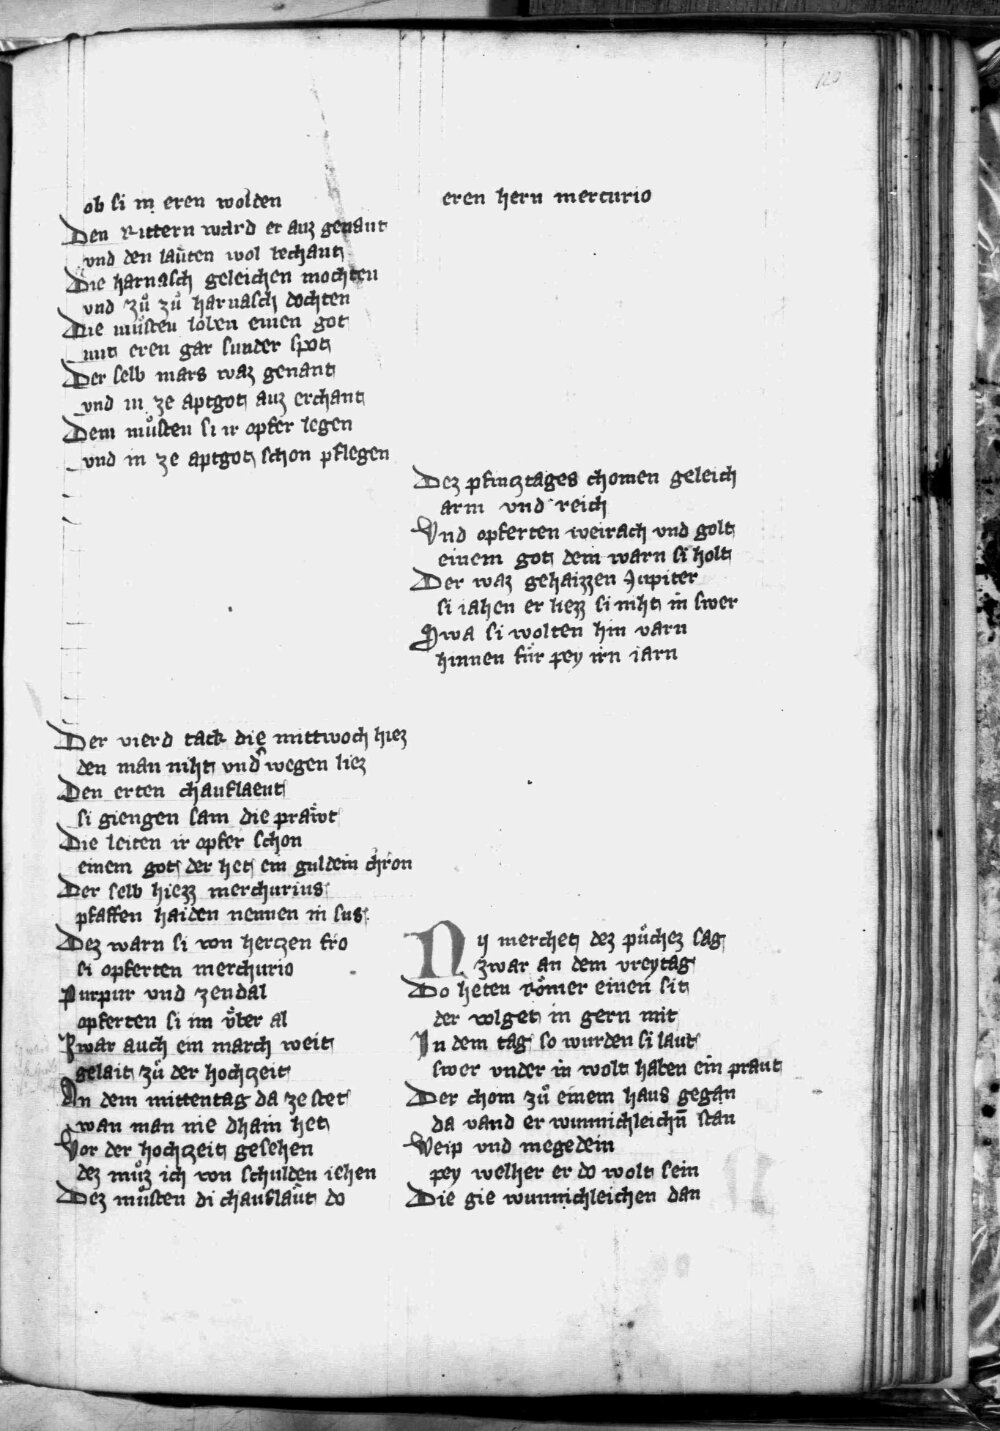 120
ob si in eren wolden
Den Rittern ward er auz genant
vnd den laͤuten wol bechant
Die harnasch geleichen mochten
vnd zuͦ zuͦ harnasch dochten
Die muͦsten loben einen got
mit eren gar sunder spot
Der selb mars waz genant
vnd in ze aptgot auz erchant
Dem muͦsten si ir opfer legen
vnd in ze aptgot schon pflegen
Der vierd tack die mittwoch hiez
den man niht vnd wegen liez
Den erten chauflaeut
si giengen sam die praͤwt
Die leiten ir opfer schon
einem got der het ein guldein chron
Der selb hiezz merchurius
pfaffen haiden nennen in sus
Dez warn si von hertzen fro
si opferten merchurio
Purpur vnd zendal
opferten si im vͤber al
Zwar auch ein march weit
gelait zuͦ der hochzeit
An dem mittentag da ze stet
wan man nie dhain het
Vor der hochzeit gesehen
dez muͦz ich von schulden iehen
Dez muͦsten di chauflaͤut do
eren hern mercurio
Dez pfincztages chomen geleich
arm vnd reich
Vnd opferten weirach vnd golt
einem got dem warn si holt
Der waz gehaizzen Jupiter
si iahen er liezz si niht in swer
Swa si wolten hin varn
hinnen fuͤr pey irn iarn
Nv merchet dez puͤchez sag
zwar an dem vreytag
Do heten Roͤmer einen sit
der volget in gern mit
In dem tag so wurden si laut
swer vnder in wolt haben ein praut
Der chom zuͦ einem haus gegan
da vand er wunnichleichn̄ stan
Weip vnd megedein
pey welher er do wolt sein
Die gie wunnichleichen dan